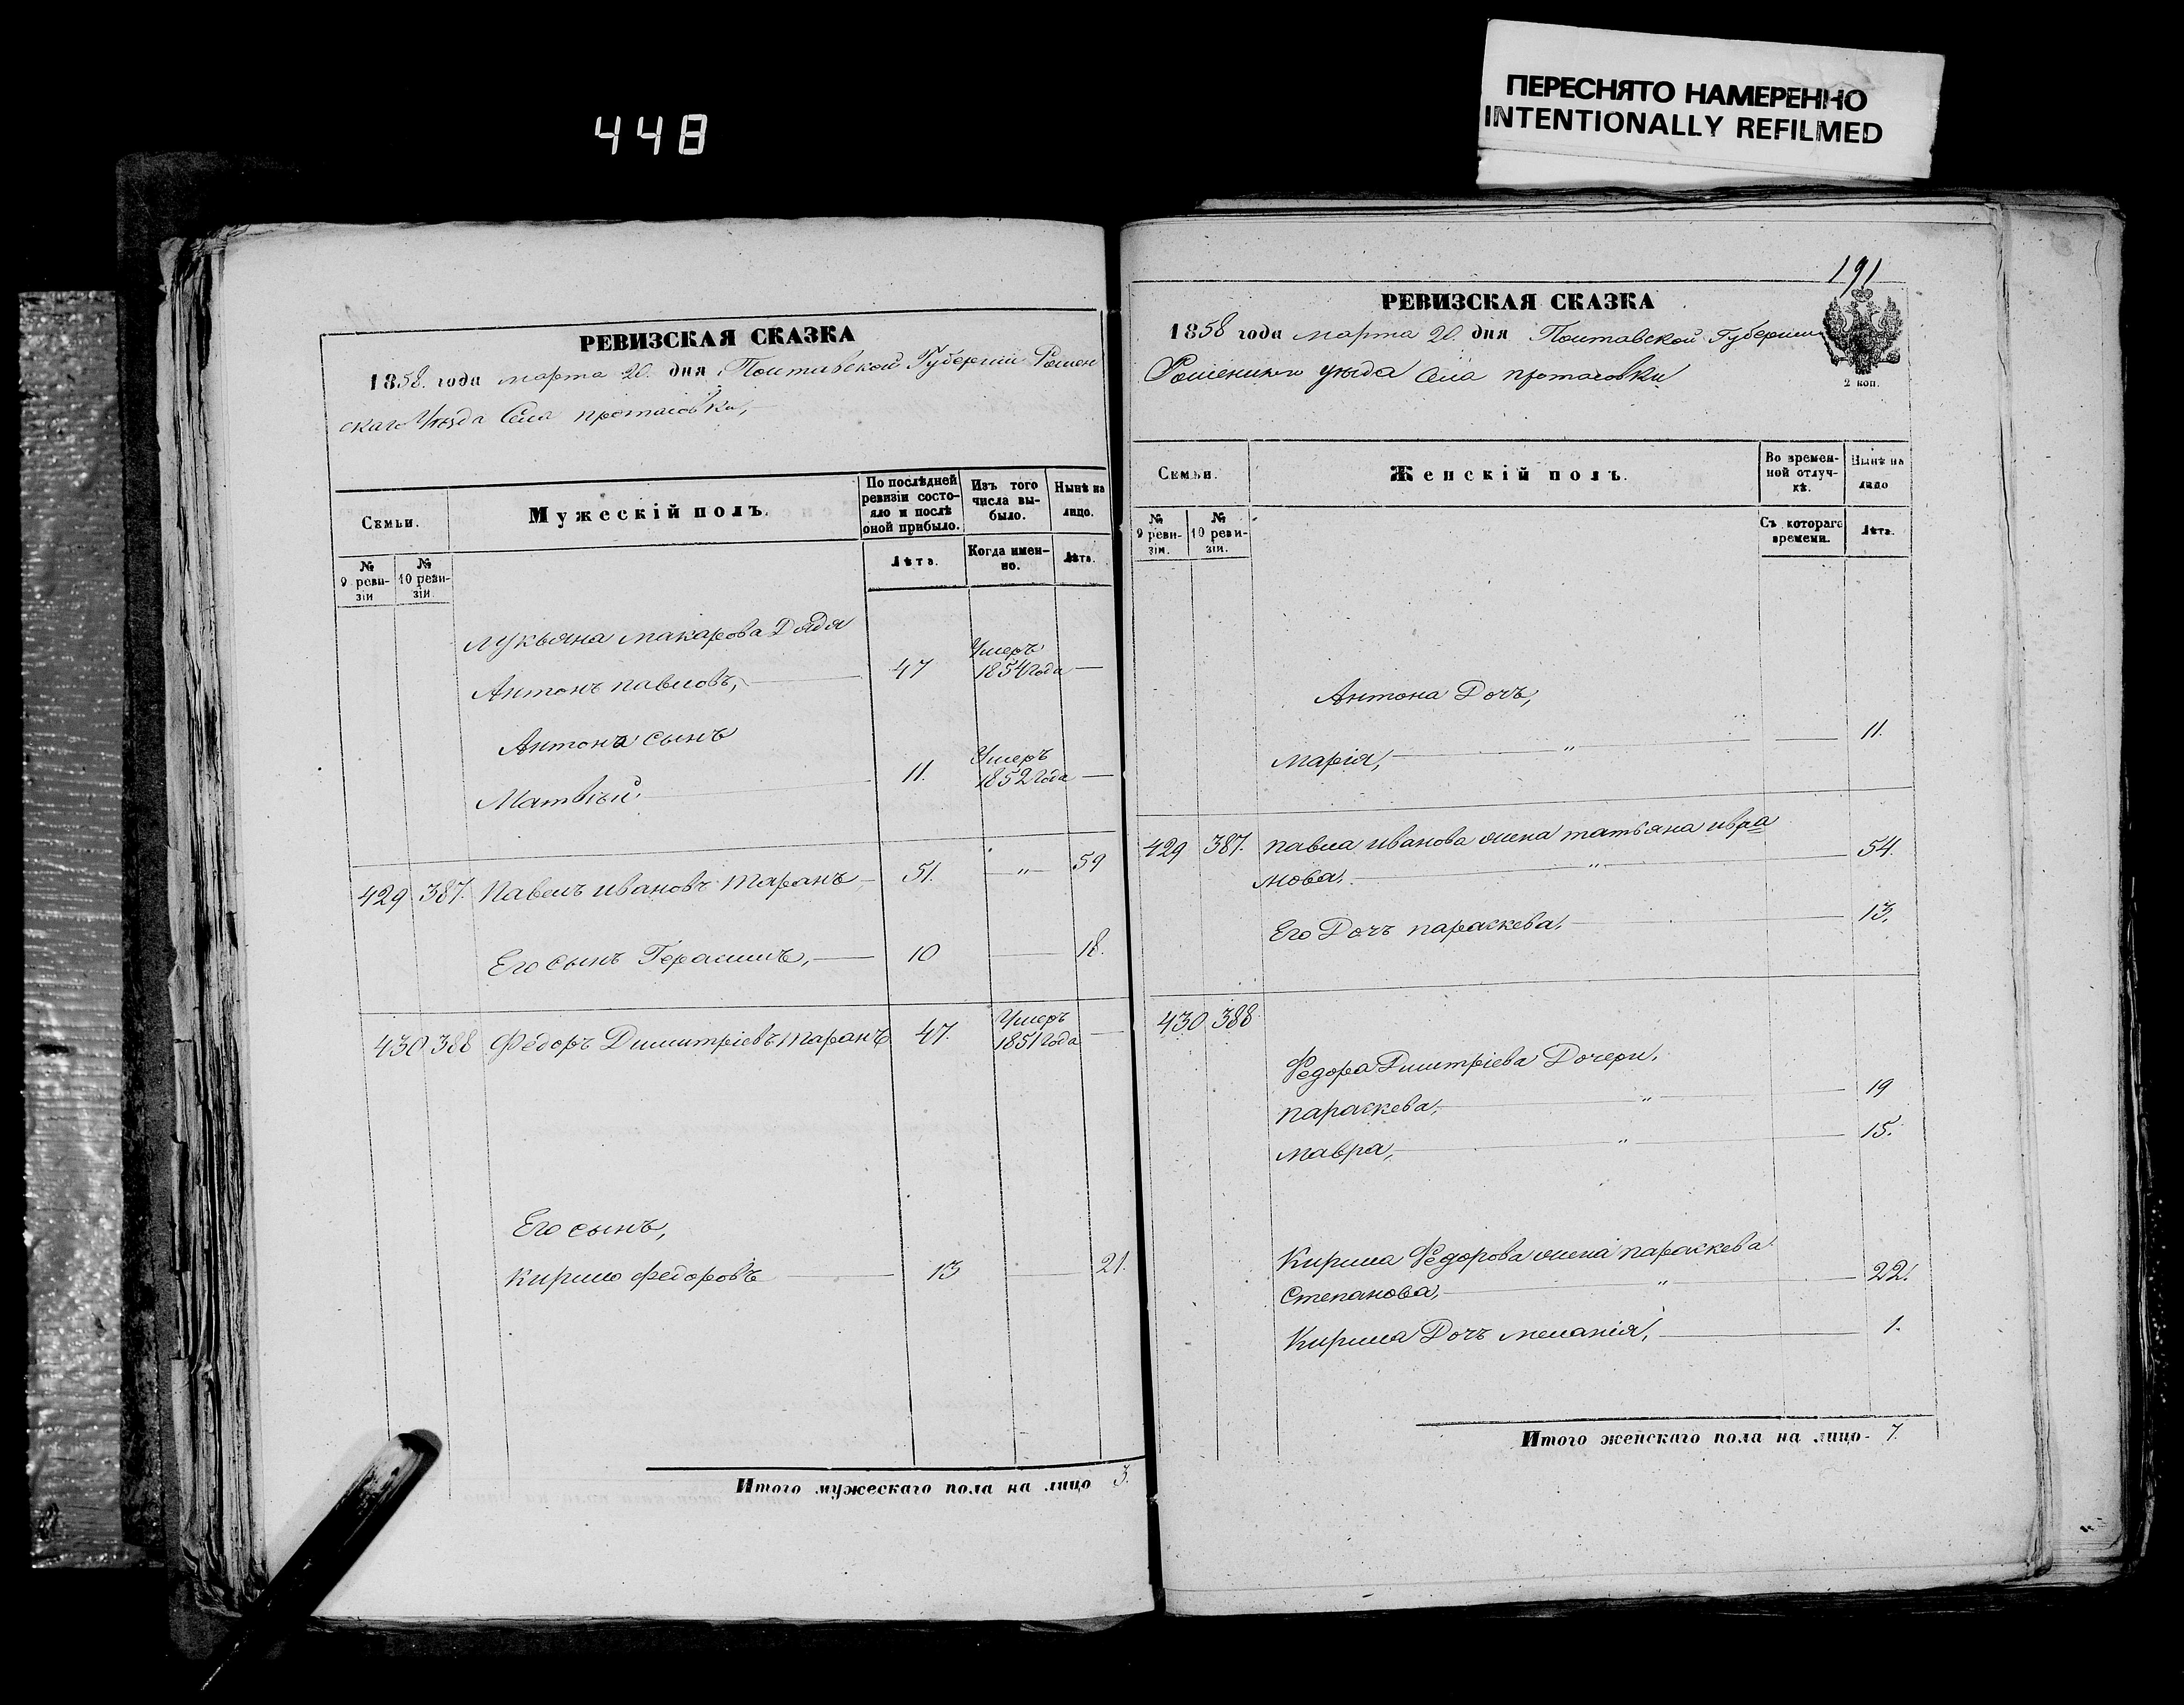 448
ПЕРЕСНЯТО НАМЕРЕННО
INTENTIONALLY REFILMED
РЕВИЗСКАЯ СКАЗКА
1858. года марта 20. дня Полтавской Губерніи Ромен
скаго Уѣзда Села протасовки,
Семьи.
Мужескій полъ.
По послѣдней
ревизіи состо-
яло и послѣ
оной прибыло.
Изъ того
числа вы-
было.
Нынѣ на
лицо.
№
9 реви-
зіи
№
10 реви-
зіи.
Лѣта.
Когда имен-
но.
Лѣта.
Лукьяна макарова Дядя
Антонъ павловъ, 47 Умеръ
1854 года
Антона сынъ
Матвѣй 11. Умеръ
1852 года
429 387. Павелъ ивановъ таранъ 51. 59
Его сынъ Герасимъ, 10 18.
430 388 Федоръ Димитріевъ таранъ 47. Умеръ
1851 года
Его сынъ,
Кирило федоровъ 13 21.
Итого мужескаго пола на лицо 3.
191
РЕВИЗСКАЯ СКАЗКА
1858 года марта 20. дня Полтавской Губерніи
уѣзда Села протасовки
2 коп.
Семьи.
Женскій полъ.
Во времен-
ной отлуч-
кѣ.
Нынѣ на
лицо
№
9 реви-
зіи.
№
10 реви-
зіи.
Съ котораго
времени.
Лѣта.
Антона Дочь,
марія, 11.
429 387. павла иванова жена татьяна
54.
Его Дочь параскева, 13.
430 388
Федора Дмитріева Дочери,
параскева, 19
мавра, 15.
Кирила Федорова жена параскева
Степанова, 22.
Кирила Дочь меланія, 1.
Итого женскаго пола на лицо 7.